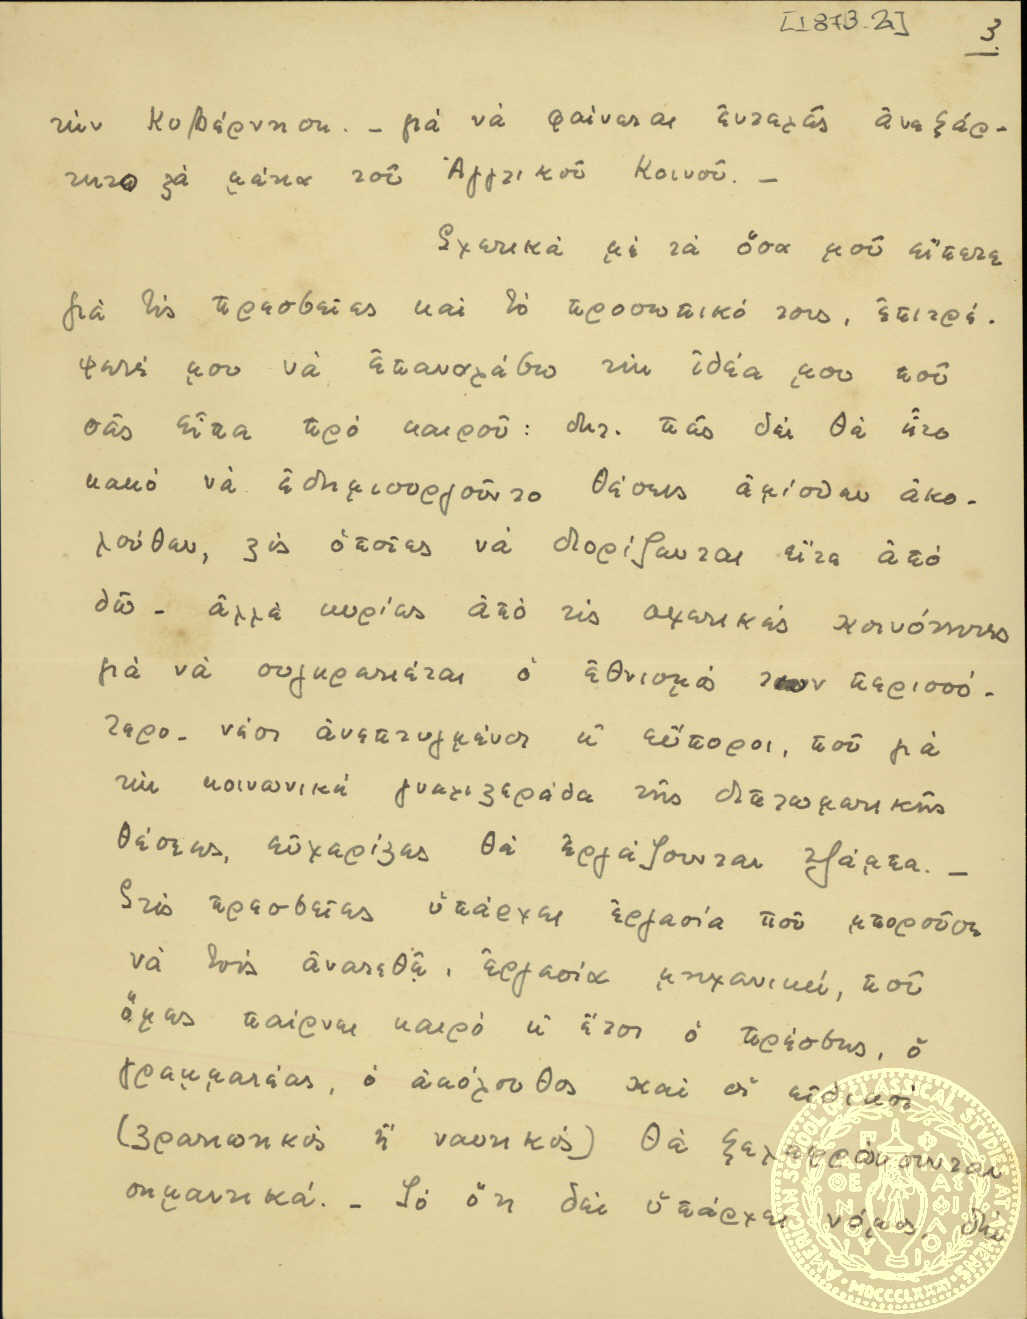 [1873-2]
3.
τὴν Κυβέρνηση. - γιὰ νὰ φαίνεται ἐντελῶς ἀνεξάρ-
τητο στὰ μάτια τοῦ Ἀγγλικοῦ Κοινοῦ. -
Σχετικὰ μὲ τὰ ὅσα μοῦ εἴπετε
γιὰ τὶς πρεσβεῖες καὶ τὸ προσωπικό τους, ἐπιτρέ-
ψετέ μου νὰ ἐπαναλάβω τὴν ἰδέα μου ποῦ
σᾶς εἶπα πρὸ καιροῦ: δηλ. πῶς δὲν θὰ ἦτο
κακὸ νὰ ἐδημιουργοῦντο θέσεις ἀμίσθων ἀκο-
λούθων, στὶς ὁποῖες νὰ διορίζωνται εἴτε ἀπὸ
δῶ - ἀλλὰ κυρίως ἀπὸ τὶς σχετικὲς κοινότητες
γιὰ νὰ συγκρατιέται ὁ ἐθνισμός των περισσό-
τερο - νέοι ἀνεπτυγμένοι κ̀ εὔποροι, ποῦ γιὰ
τὴν κοινωνικὴ γυαλιστεράδα τῆς διπλωματικῆς
θέσεως, εὐχαρίστως θὰ ἐργάζουνται τζάμπα. -
Στὶς πρεσβεῖες ὑπάρχει ἐργασία ποῦ μποροῦσε
νὰ τοὺς ἀνατεθῇ, ἐργασία μηχανική, ποῦ
ὅμως παίρνει καιρὸ κ̀ ἔτσι ὁ πρέσβης, ὁ
γραμματέας, ὁ ἀκόλουθος καὶ οἱ εἰδικοὶ
(στρατιωτικὸς ἢ ναυτικός) θὰ ξελαφρώνουνται
σημαντικά. - Τὸ ὅτι δὲν ὑπάρχει νόμος, δὲν
AMERICAN SCHOOL OF CLASSICAL STUDIES AT ATHENS
MDCCCLXXXI